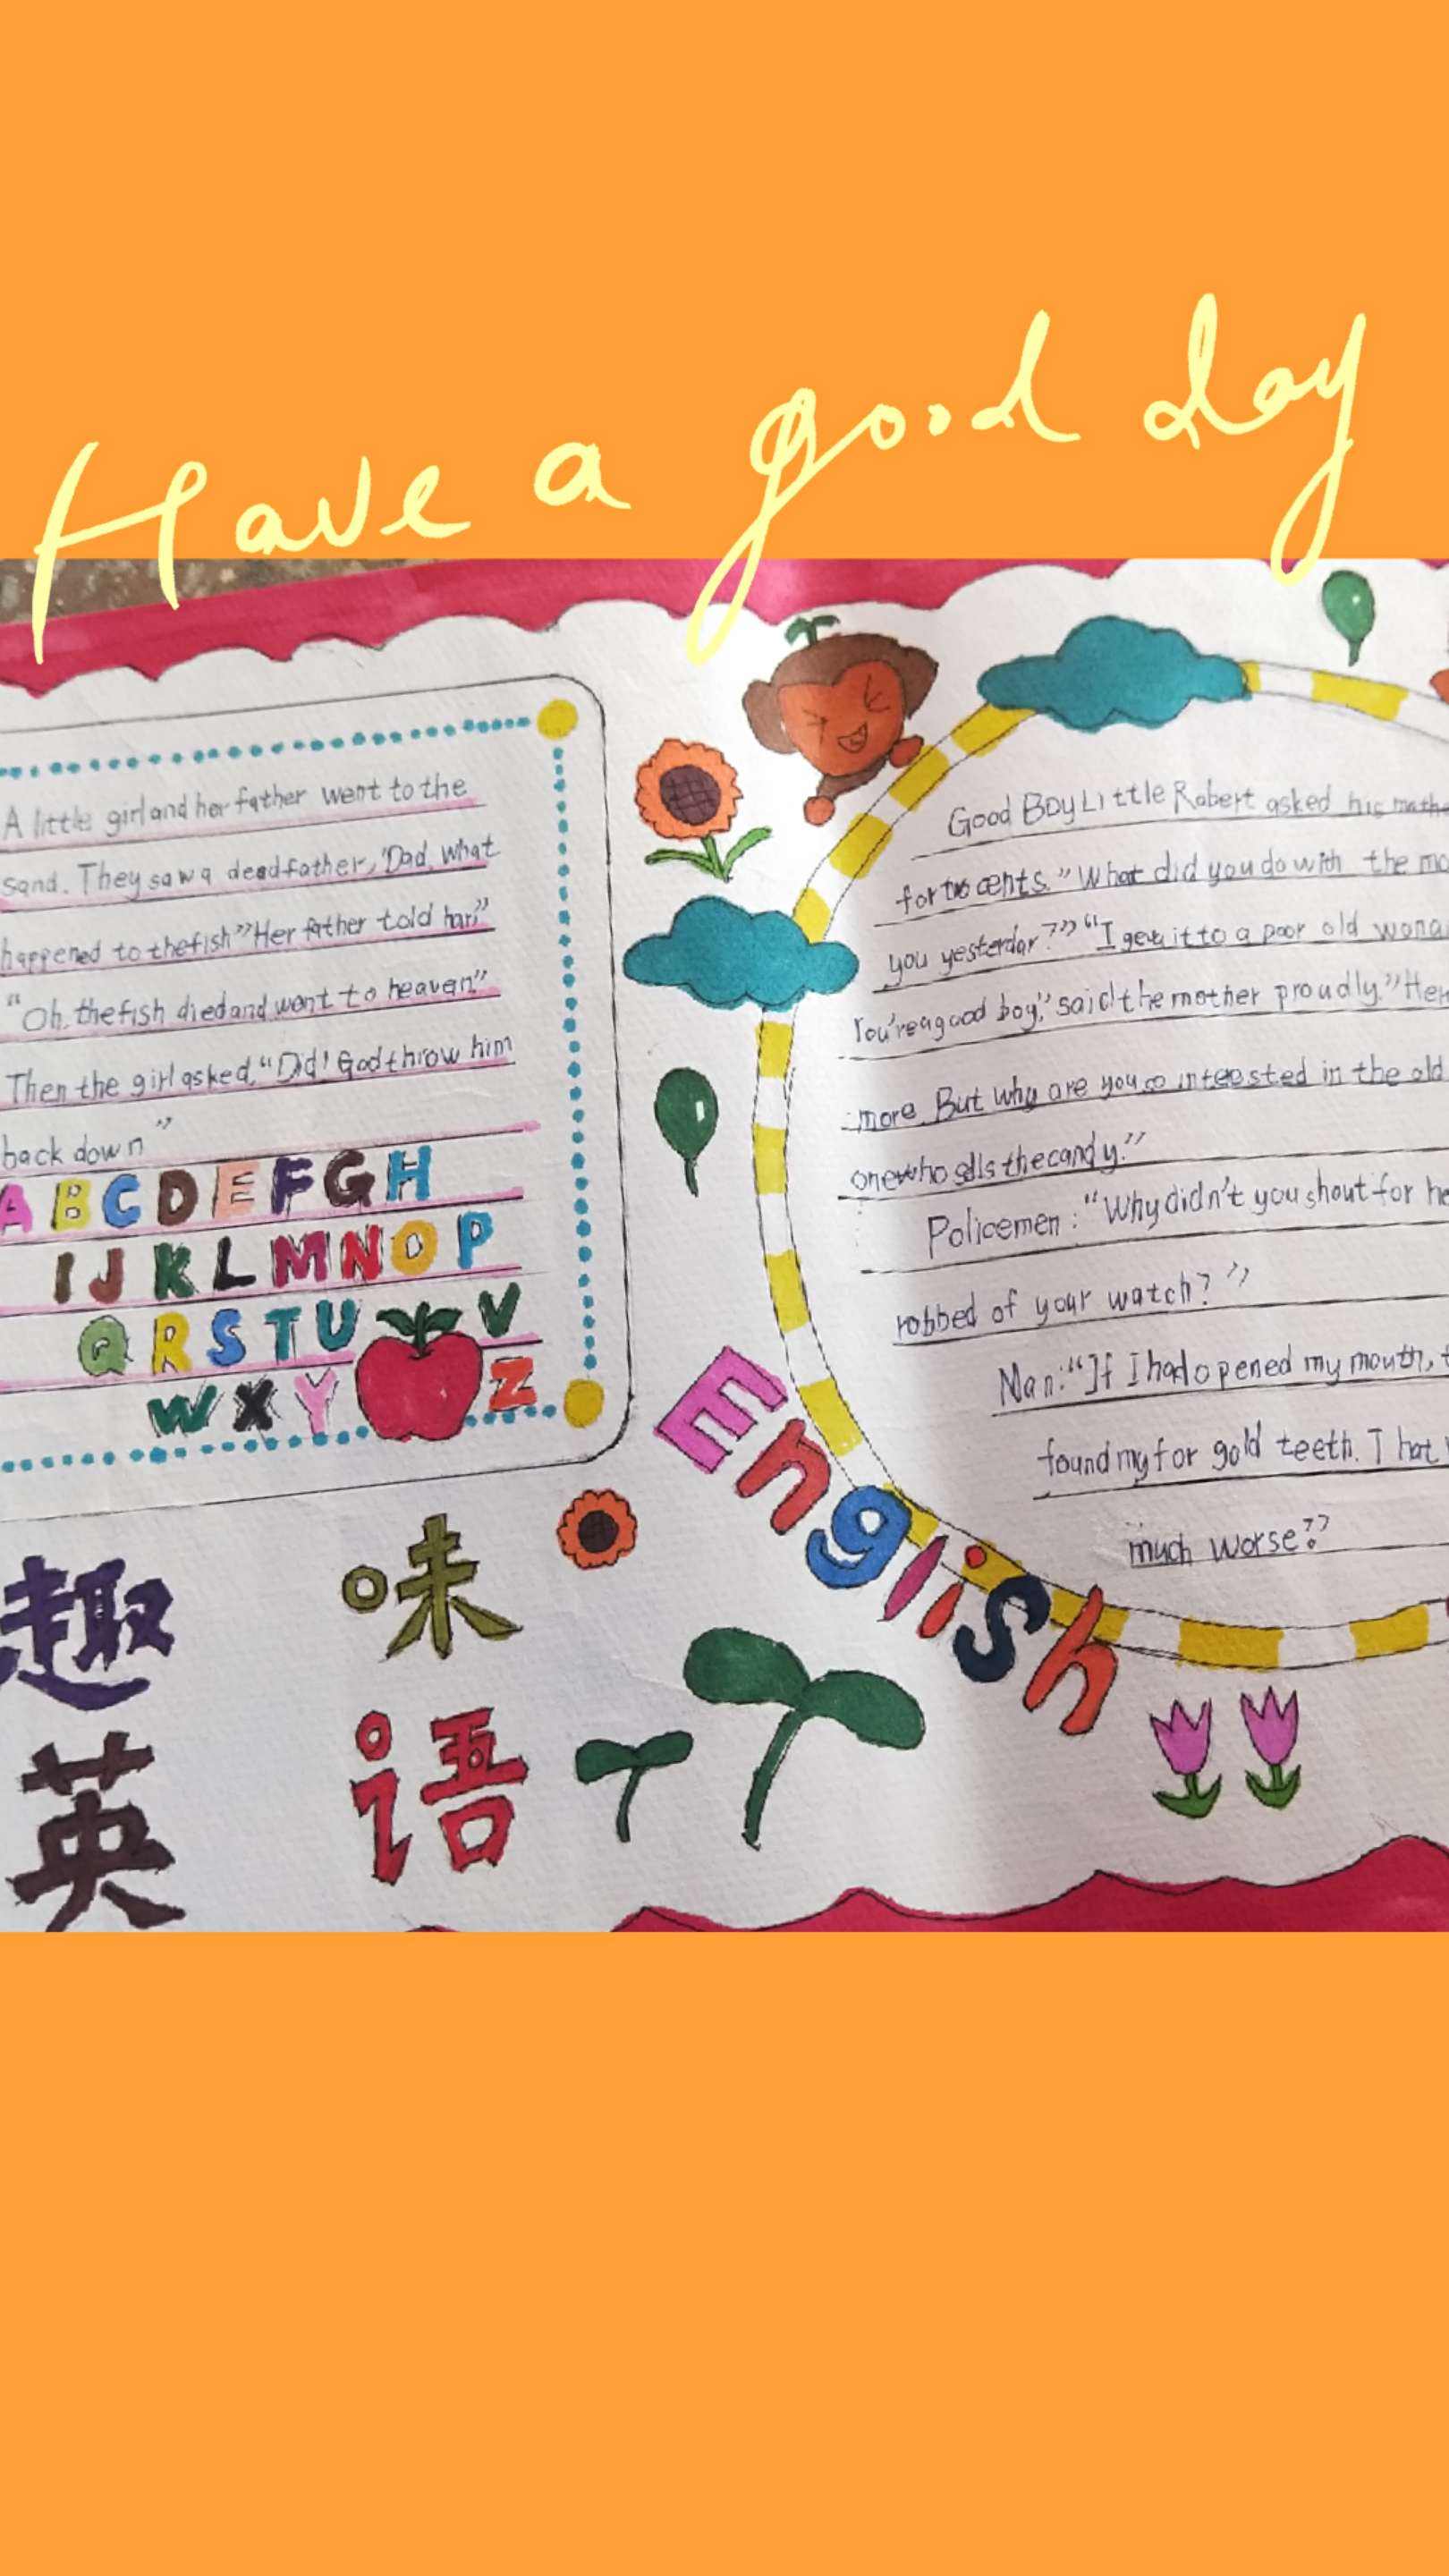 Have a good day
A little girl and her father went to the
sand. They saw a dead father, "Dad, what
happened to the fish" "Her father told har."
"Oh, the fish died and want to heaven."
Then the girl asked, "Did! God throw him
back down"
A B C D E F G H
I J K L M N O P
Q R S T U V
W X Y Z
趣 味
英 语
English
Good Boy Little Robert asked his
for two cents." What did you do with the
you yesterdar?" "I gave it to a poor old
You're a good boy," said the mother proudly."
more. But why are you so interested in the old
one who sells the candy."
Policemen: "Why didn't you shout for
robbed of your watch?"
Nan: "If I had opened my mouth,
found my for gold teeth. That
much worse?"